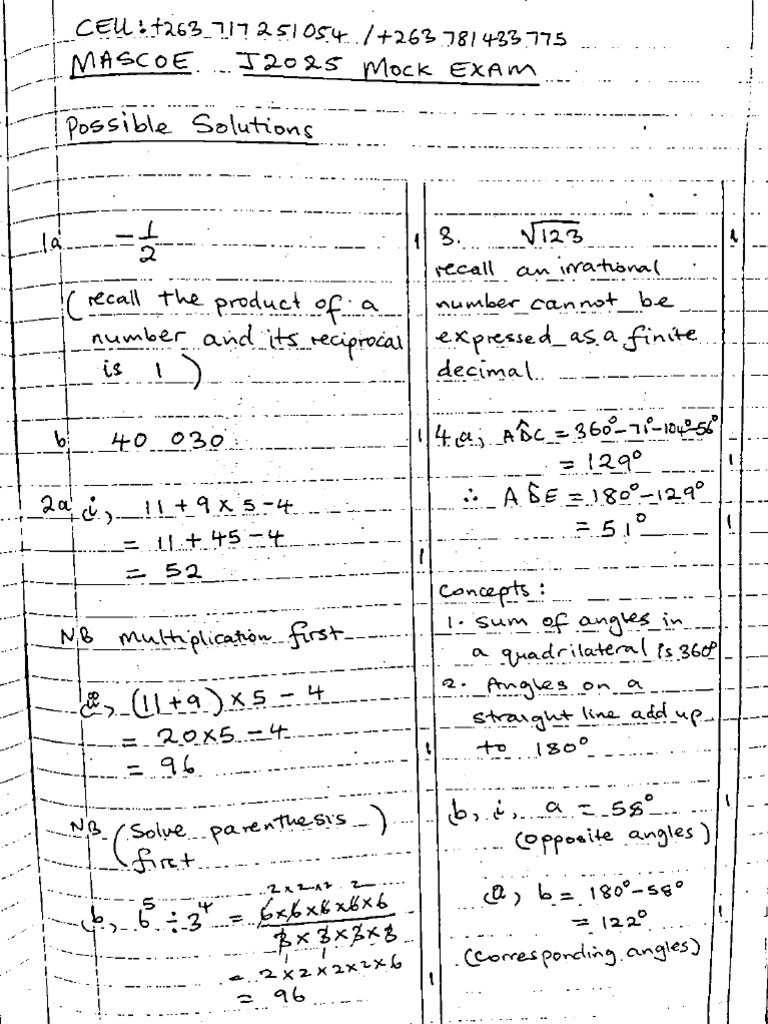 CELL: +263 717 251054 / +263 781 433 775
MASCOE J2025 MOCK EXAM
Possible Solutions
1a -1/2 1
(recall the product of a
number and its reciprocal
is 1)
b 40 030 1
2a i, 11 + 9 × 5 - 4
= 11 + 45 - 4
= 52 1
NB multiplication first
ii, (11+9) × 5 - 4
= 20×5 - 4
= 96 1
NB (Solve parenthesis
first)
b, 6^5 ÷ 3^4 = 6×6×6×6×6 / 3×3×3×3
2 × 2 × 2 2
1 1
= 2×2×2×2×6
= 96 1
3. √123 1
recall an irrational
number cannot be
expressed as a finite
decimal
4a, AD̂C = 360°-71°-104°-56°
= 129° 1
∴ AD̂E = 180°-129°
= 51° 1
Concepts:
1. Sum of angles in
a quadrilateral is 360°
2. Angles on a
straight line add up
to 180°
b, i, a = 58° 1
(opposite angles)
ii, b = 180°-58°
= 122° 1
(corresponding angles)